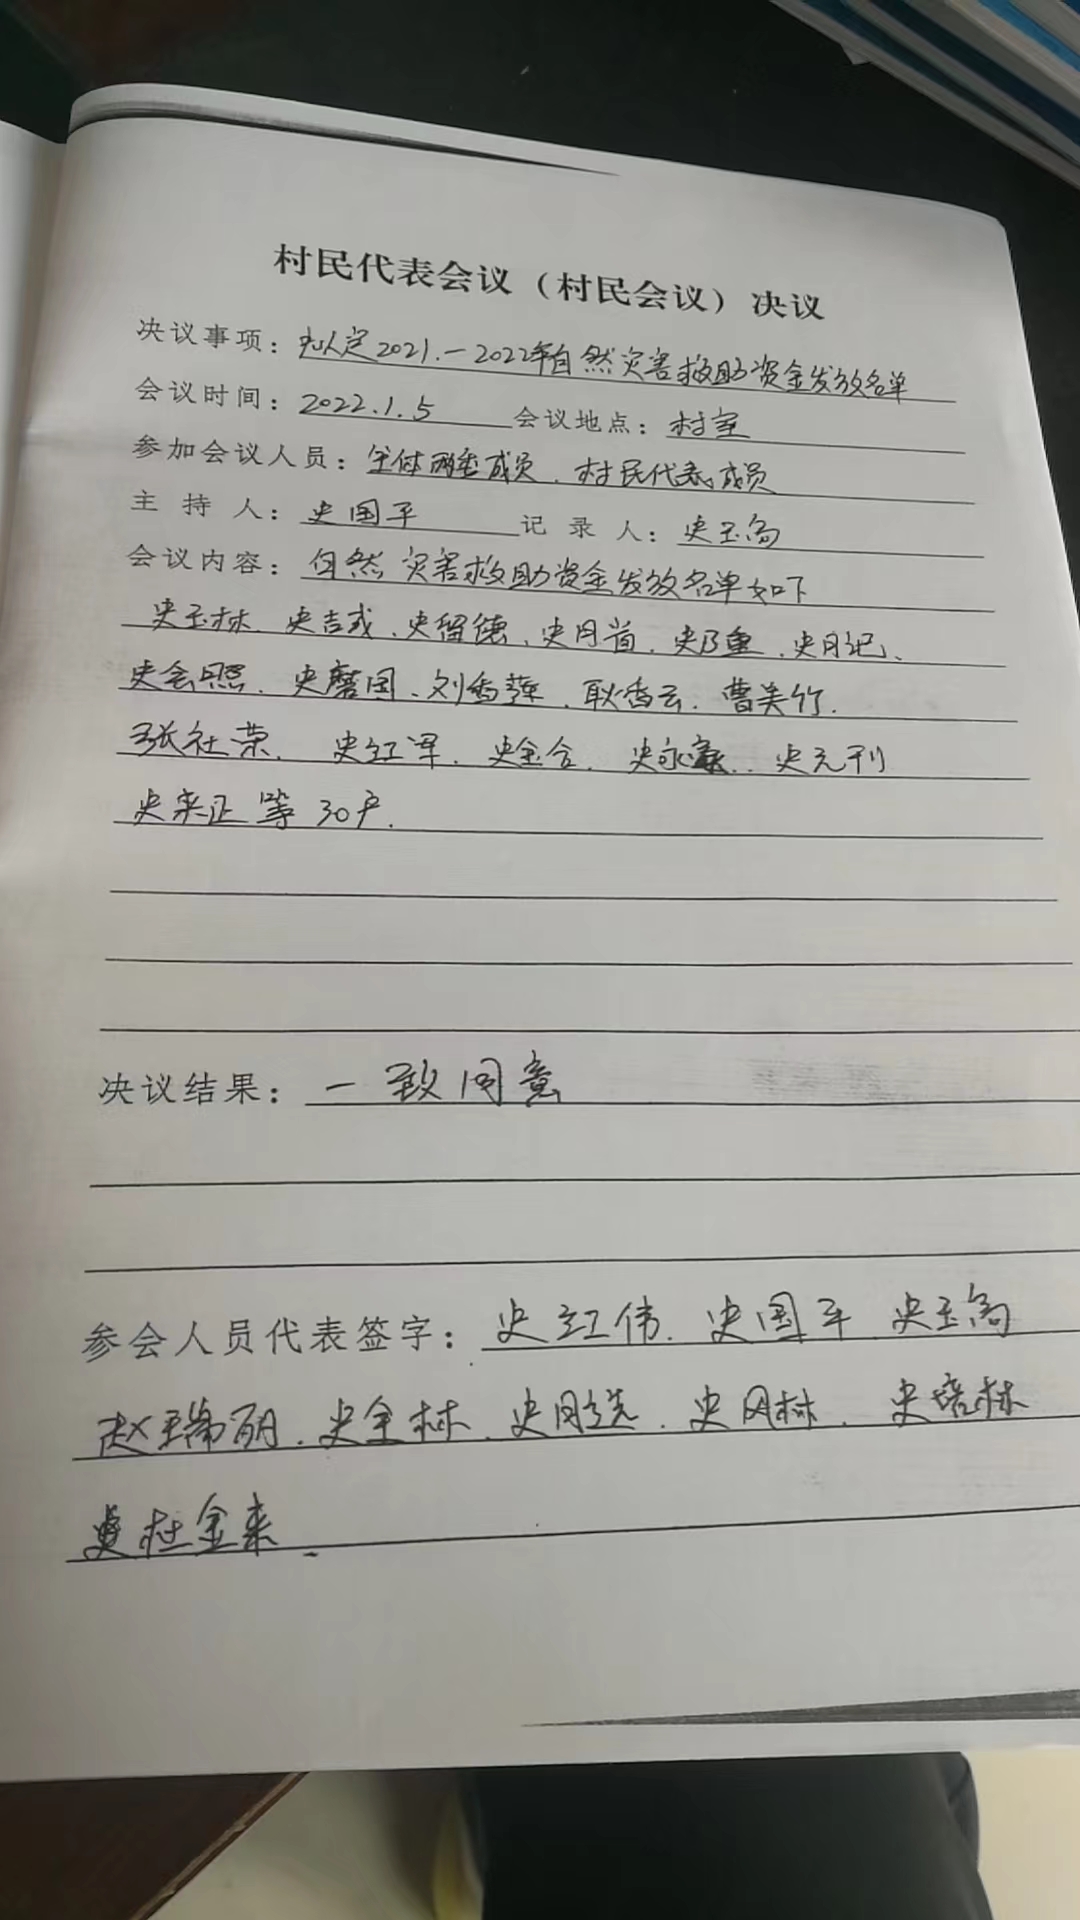 村民代表会议（村民会议）决议
决议事项：拟定2021.—2022年自然灾害救助资金发放名单
会议时间：2022.1.5 会议地点：村室
参加会议人员：全体两委成员、村民代表成员
主持人：史国平 记录人：史玉高
会议内容：自然灾害救助资金发放名单如下
史玉林、史吉成、史留德、史月首、史、史月记、
史会照、史磨国、刘香莲、耿香云、曹美竹、
张社荣、史红军、史金合、史永、史元刊
史来正等30户.
决议结果：一致同意
参会人员代表签字：史红伟、史国平 史玉高
赵瑞丽、史全林、史同选、史风林、史培林
杜金来